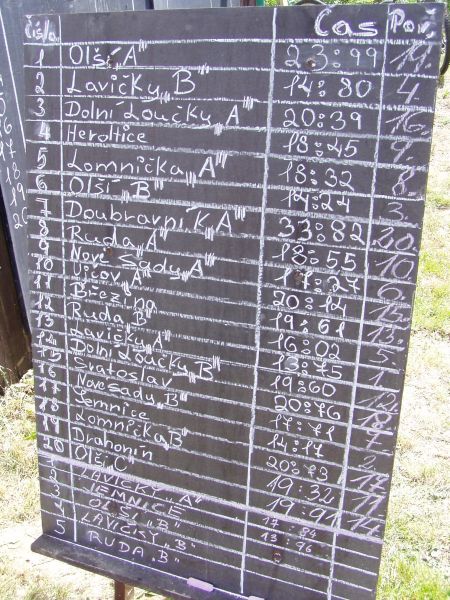 Čísl. Čas Poř.
1 Olší „A" 23:99 19.
2 Lavičky „B" 14:80 4.
3 Dolní Loučky „A" 20:39 16.
4 Heroltice 18:45 9.
5 Lomnička „A" 18:32 8.
6 Olší „B" 14:24 3.
7 Doubravník „A" 33:82 20.
8 Ruda „A" 18:55 10.
9 Nové Sady „A" 17:27 6.
10 Ujčov „A" 20:14 15.
11 Březina 19:61 13.
12 Ruda „B" 16:02 5.
13 Lavičky „A" 13:75 1.
14 Dolní Loučky „B" 19:60 12.
15 20:76 18.
16 Nové Sady „B" 17:71 7.
17 Jemnice 14:17 2.
18 Lomnička „B" 20:73 17.
19 Drahonín 19:32 11.
20 Olší „C" 19:91 14.
LAVIČKY „A" 17:84
2 JEMNICE 13:96
3 OLŠÍ „B"
4 LAVIČKY „B"
5 RUDA „B"
16
17
18
19